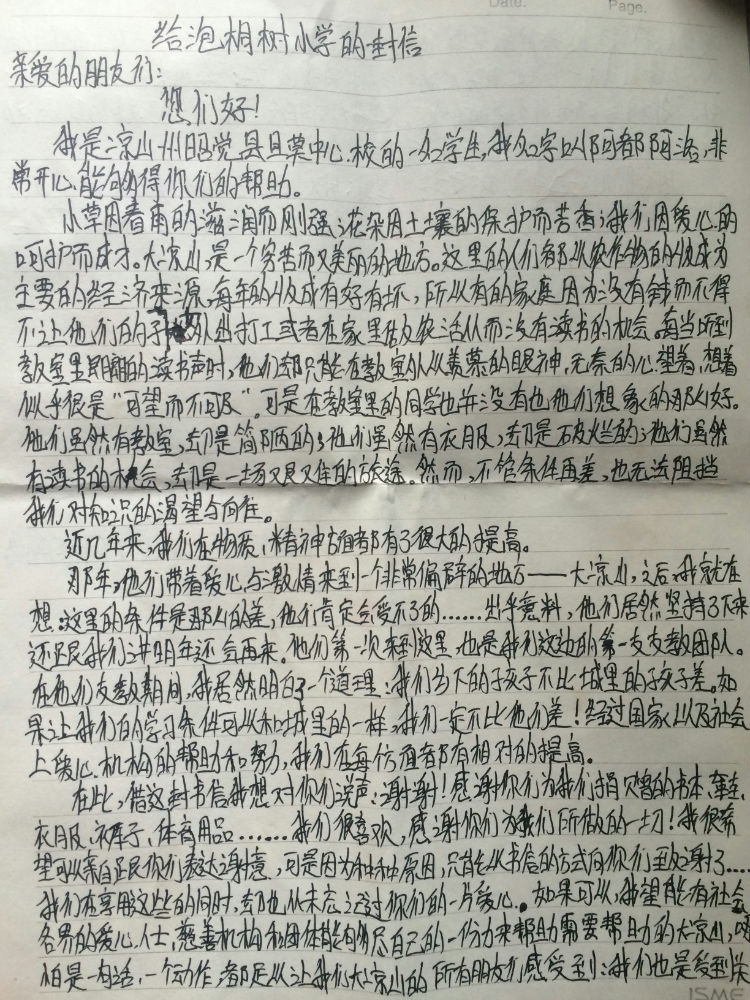 Date.
Page.
给泡桐树小学的一封信
亲爱的朋友们:
您们好!
我是凉山州昭觉县且莫中心校的一名学生,我名字叫阿都阿洛,非
常开心能够得你们的帮助。
小草因春雨的滋润而刚强;花朵因土壤的保护而芳香;我们因爱心的
呵护而成才。大凉山,是一个穷苦而又美丽的地方。这里的人们都以农作物的收成为
主要的经济来源,每年的收成有好有坏,所以有的家庭因为没有钱而不得
不让他们的子 外出打工或者在家里做农活从而没有读书的机会。每当听到
教室里朗朗的读书声时,他们却只能在教室外以羡慕的眼神,无奈的心望着,想着
似乎很是“可望而不可及”。可是在教室里的同学也并没有他们想象的那么好。
他们虽然有教室,却是简陋的;他们虽然有衣服,却是破烂的;他们虽然
有读书的机会,却是一场又艰又难的旅途。然而,不管条件再差,也无法阻挡
我们对知识的渴望与向往。
近几年来,我们在物质、精神方面都有了很大的提高。
那年,他们带着爱心与激情来到一个非常偏僻的地方——大凉山,之后,我就在
想:这里的条件是那么的差,他们肯定会受不了的……出乎意料,他们居然坚持了下来
还跟我们讲明年还会再来。他们第一次来到这里,也是我们这边的第一支支教团队。
在他们支教期间,我居然明白了一个道理:我们乡下的孩子不比城里的孩子差。如
果让我们的学习条件可以和城里的一样,我们一定不比他们差!经过国家以及社会
上爱心机构的帮助和努力,我们在每方面都有相对的提高。
在此,借这封书信我想对你们说声:谢谢!感谢你们为我们捐赠的书本、鞋、
衣服、裤子、体育用品……我们很喜欢,感谢你们为我们所做的一切!我很希
望可以亲自跟你们表达谢意,可是因为种种原因,只能以书信的方式向你们致谢了……
我们在享用这些的同时,却也从未忘记过你们的一片爱心。如果可以,我望能有社会
各界的爱心人士,慈善机构和团体能够尽自己的一份力来帮助需要帮助的大凉山,哪
怕是一句话,一个动作,都足以让我们大凉山的所有朋友们感受到:我们也是受到关